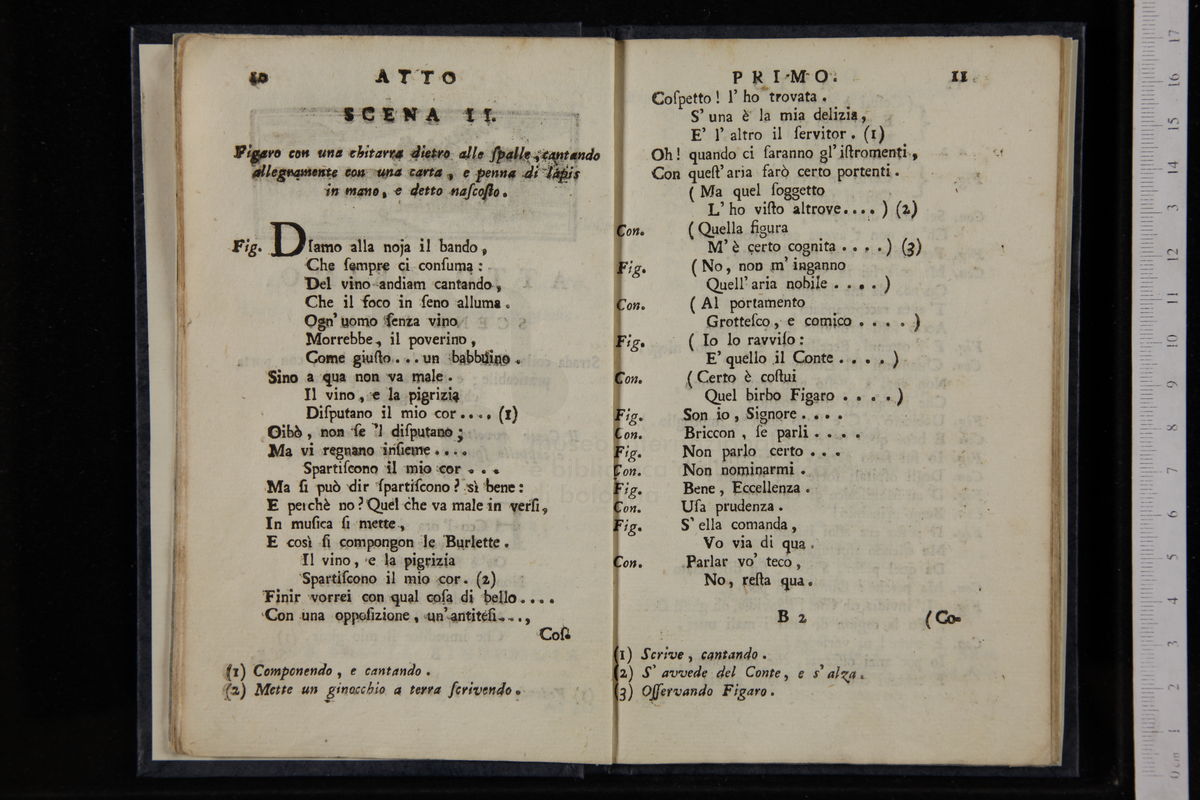 10 ATTO
SCENA II.
Figaro con una chitarra dietro alle ſpalle, cantando
allegnamente con una carta, e penna di lapis
in mano, e detto naſcoſto.
Fig. DIamo alla noja il bando,
Che ſempre ci conſuma:
Del vino andiam cantando,
Che il foco in ſeno alluma.
Ogn' uomo ſenza vino
Morrebbe, il poverino,
Come giuſto... un babbuino.
Sino a qua non va male.
Il vino, e la pigrizia
Diſputano il mio cor.... (1)
Oibò, non ſe 'l diſputano;
Ma vi regnano inſieme....
Spartiſcono il mio cor ...
Ma ſi può dir ſpartiſcono? sì bene:
E perchè no? Quel che va male in verſi,
In muſica ſi mette,
E così ſi compongon le Burlette.
Il vino, e la pigrizia
Spartiſcono il mio cor. (2)
Finir vorrei con qual coſa di bello....
Con una oppoſizione, un' antiteſi....,
Coſ-
(1) Componendo, e cantando.
(2) Mette un ginocchio a terra ſcrivendo.
PRIMO. 11
Coſpetto! l' ho trovata.
S' una è la mia delizia,
E' l' altro il ſervitor. (1)
Oh! quando ci ſaranno gl' iſtromenti,
Con queſt' aria farò certo portenti.
(Ma quel ſoggetto
L' ho viſto altrove....) (2)
Con. (Quella figura
M' è certo cognita ....) (3)
Fig. (No, non m' inganno
Quell' aria nobile ....)
Con. (Al portamento
Grotteſco, e comico ....)
Fig. (Io lo ravviſo:
E' quello il Conte ....)
Con. (Certo è coſtui
Quel birbo Figaro ....)
Fig. Son io, Signore ....
Con. Briccon, ſe parli ....
Fig. Non parlo certo ...
Con. Non nominarmi.
Fig. Bene, Eccellenza.
Con. Uſa prudenza.
Fig. S' ella comanda,
Vo via di qua.
Con. Parlar vo' teco,
No, reſta qua.
B 2 (Co-
(1) Scrive, cantando.
(2) S' avvede del Conte, e s' alza.
(3) Oſſervando Figaro.